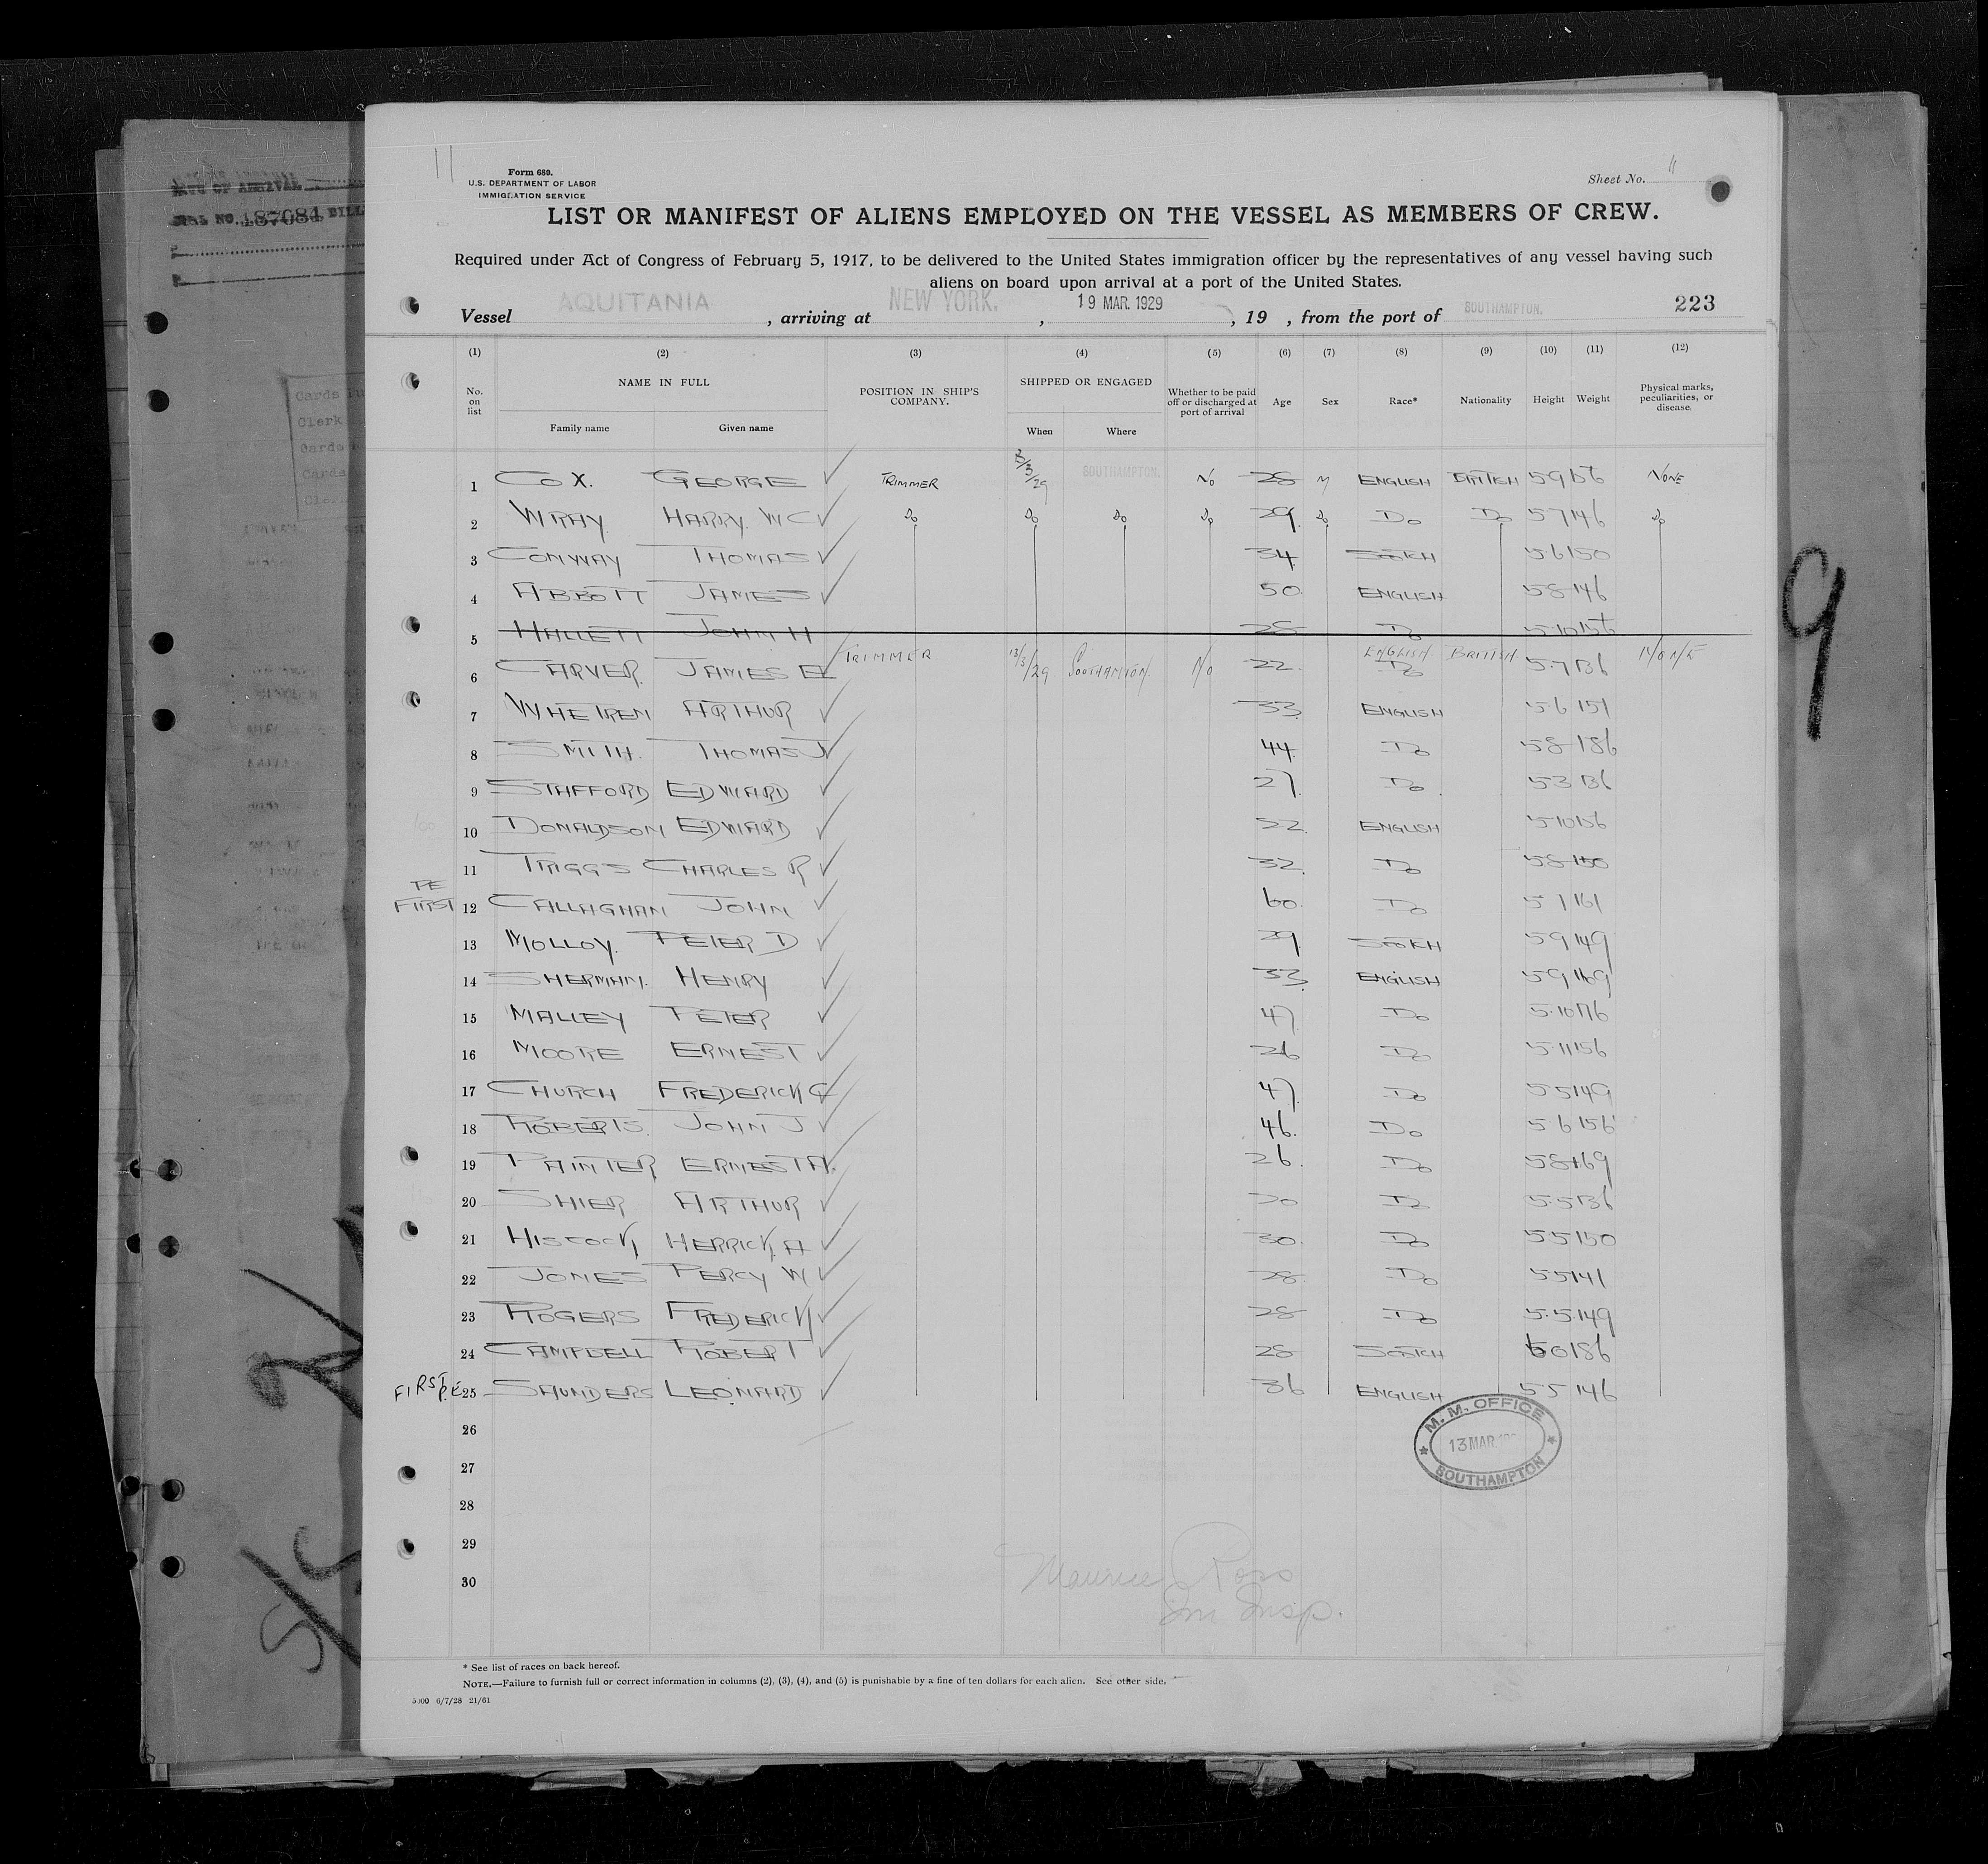 11
Form 680.
U.S. DEPARTMENT OF LABOR
IMMIGRATION SERVICE
Sheet No. 11
LIST OR MANIFEST OF ALIENS EMPLOYED ON THE VESSEL AS MEMBERS OF CREW.
Required under Act of Congress of February 5, 1917, to be delivered to the United States immigration officer by the representatives of any vessel having such
aliens on board upon arrival at a port of the United States.
Vessel AQUITANIA, arriving at NEW YORK., 19 MAR. 1929, 19 , from the port of SOUTHAMPTON. 223
(1) (2) (3) (4) (5) (6) (7) (8) (9) (10) (11) (12)
No. on list NAME IN FULL POSITION IN SHIP'S COMPANY. SHIPPED OR ENGAGED Whether to be paid off or discharged at port of arrival Age Sex Race* Nationality Height Weight Physical marks, peculiarities, or disease.
Family name Given name When Where
1 COX. GEORGE TRIMMER 13/3/29 SOUTHAMPTON. No 28 M ENGLISH BRITISH 5 9 156 NONE
2 WRAY. HARRY. W C Do Do Do Do 29. Do Do Do 5 7 146 Do
3 CONWAY THOMAS 34. SCOTCH 5 6 150
4 ABBOTT JAMES 50. ENGLISH 5 8 146
5 HALLETT JOHN H 28 Do 5 10 156
6 CARVER. JAMES E TRIMMER 13/3/29 SOUTHAMPTON. No 22. ENGLISH Do BRITISH 5.7 136 NONE
7 WHETREN ARTHUR 33. ENGLISH 5 6 151
8 SMITH. THOMAS J 44. Do 5 8 186
9 STAFFORD EDWARD 27. Do. 5 3 136
10 DONALDSON EDWARD 22. ENGLISH 5 10 156
11 TRIGGS CHARLES R 32. Do 5 8 150
PE
FIRST 12 CALLAGHAN JOHN 60. Do 5 7 161
13 MOLLOY. PETER D 29. SCOTCH 5 9 149
14 SHERMAN. HENRY 33. ENGLISH 5 9 169
15 MALLEY PETER 47. Do 5.10 176
16 MOORE ERNEST 26 Do 5.11 156
17 CHURCH FREDERICK G 47. Do 5 5 149
18 ROBERTS. JOHN J 46. Do 5 6 156
19 PAINTER ERNEST A. 26. Do 5 8 169
20 SHIER ARTHUR 30 Do 5.5 136
21 HISCOCK HERRICK A 30. Do 5 5 150
22 JONES PERCY W 28. Do 5 5 141
23 ROGERS FREDERICK 28 Do 5.5.149
24 CAMPBELL ROBERT 28 SCOTCH 6 0 186
FIRST P.E. 25 SAUNDERS LEONARD 36 ENGLISH 5 5 146
26
27
28
29
30
M. M. OFFICE
13 MAR
SOUTHAMPTON
Maurice Ross
Im Insp.
* See list of races on back hereof.
NOTE.—Failure to furnish full or correct information in columns (2), (3), (4), and (5) is punishable by a fine of ten dollars for each alien. See other side.
5000 6/7/28 21/61
187084 BILL
Cards
Clerk
Cards
Cards
9